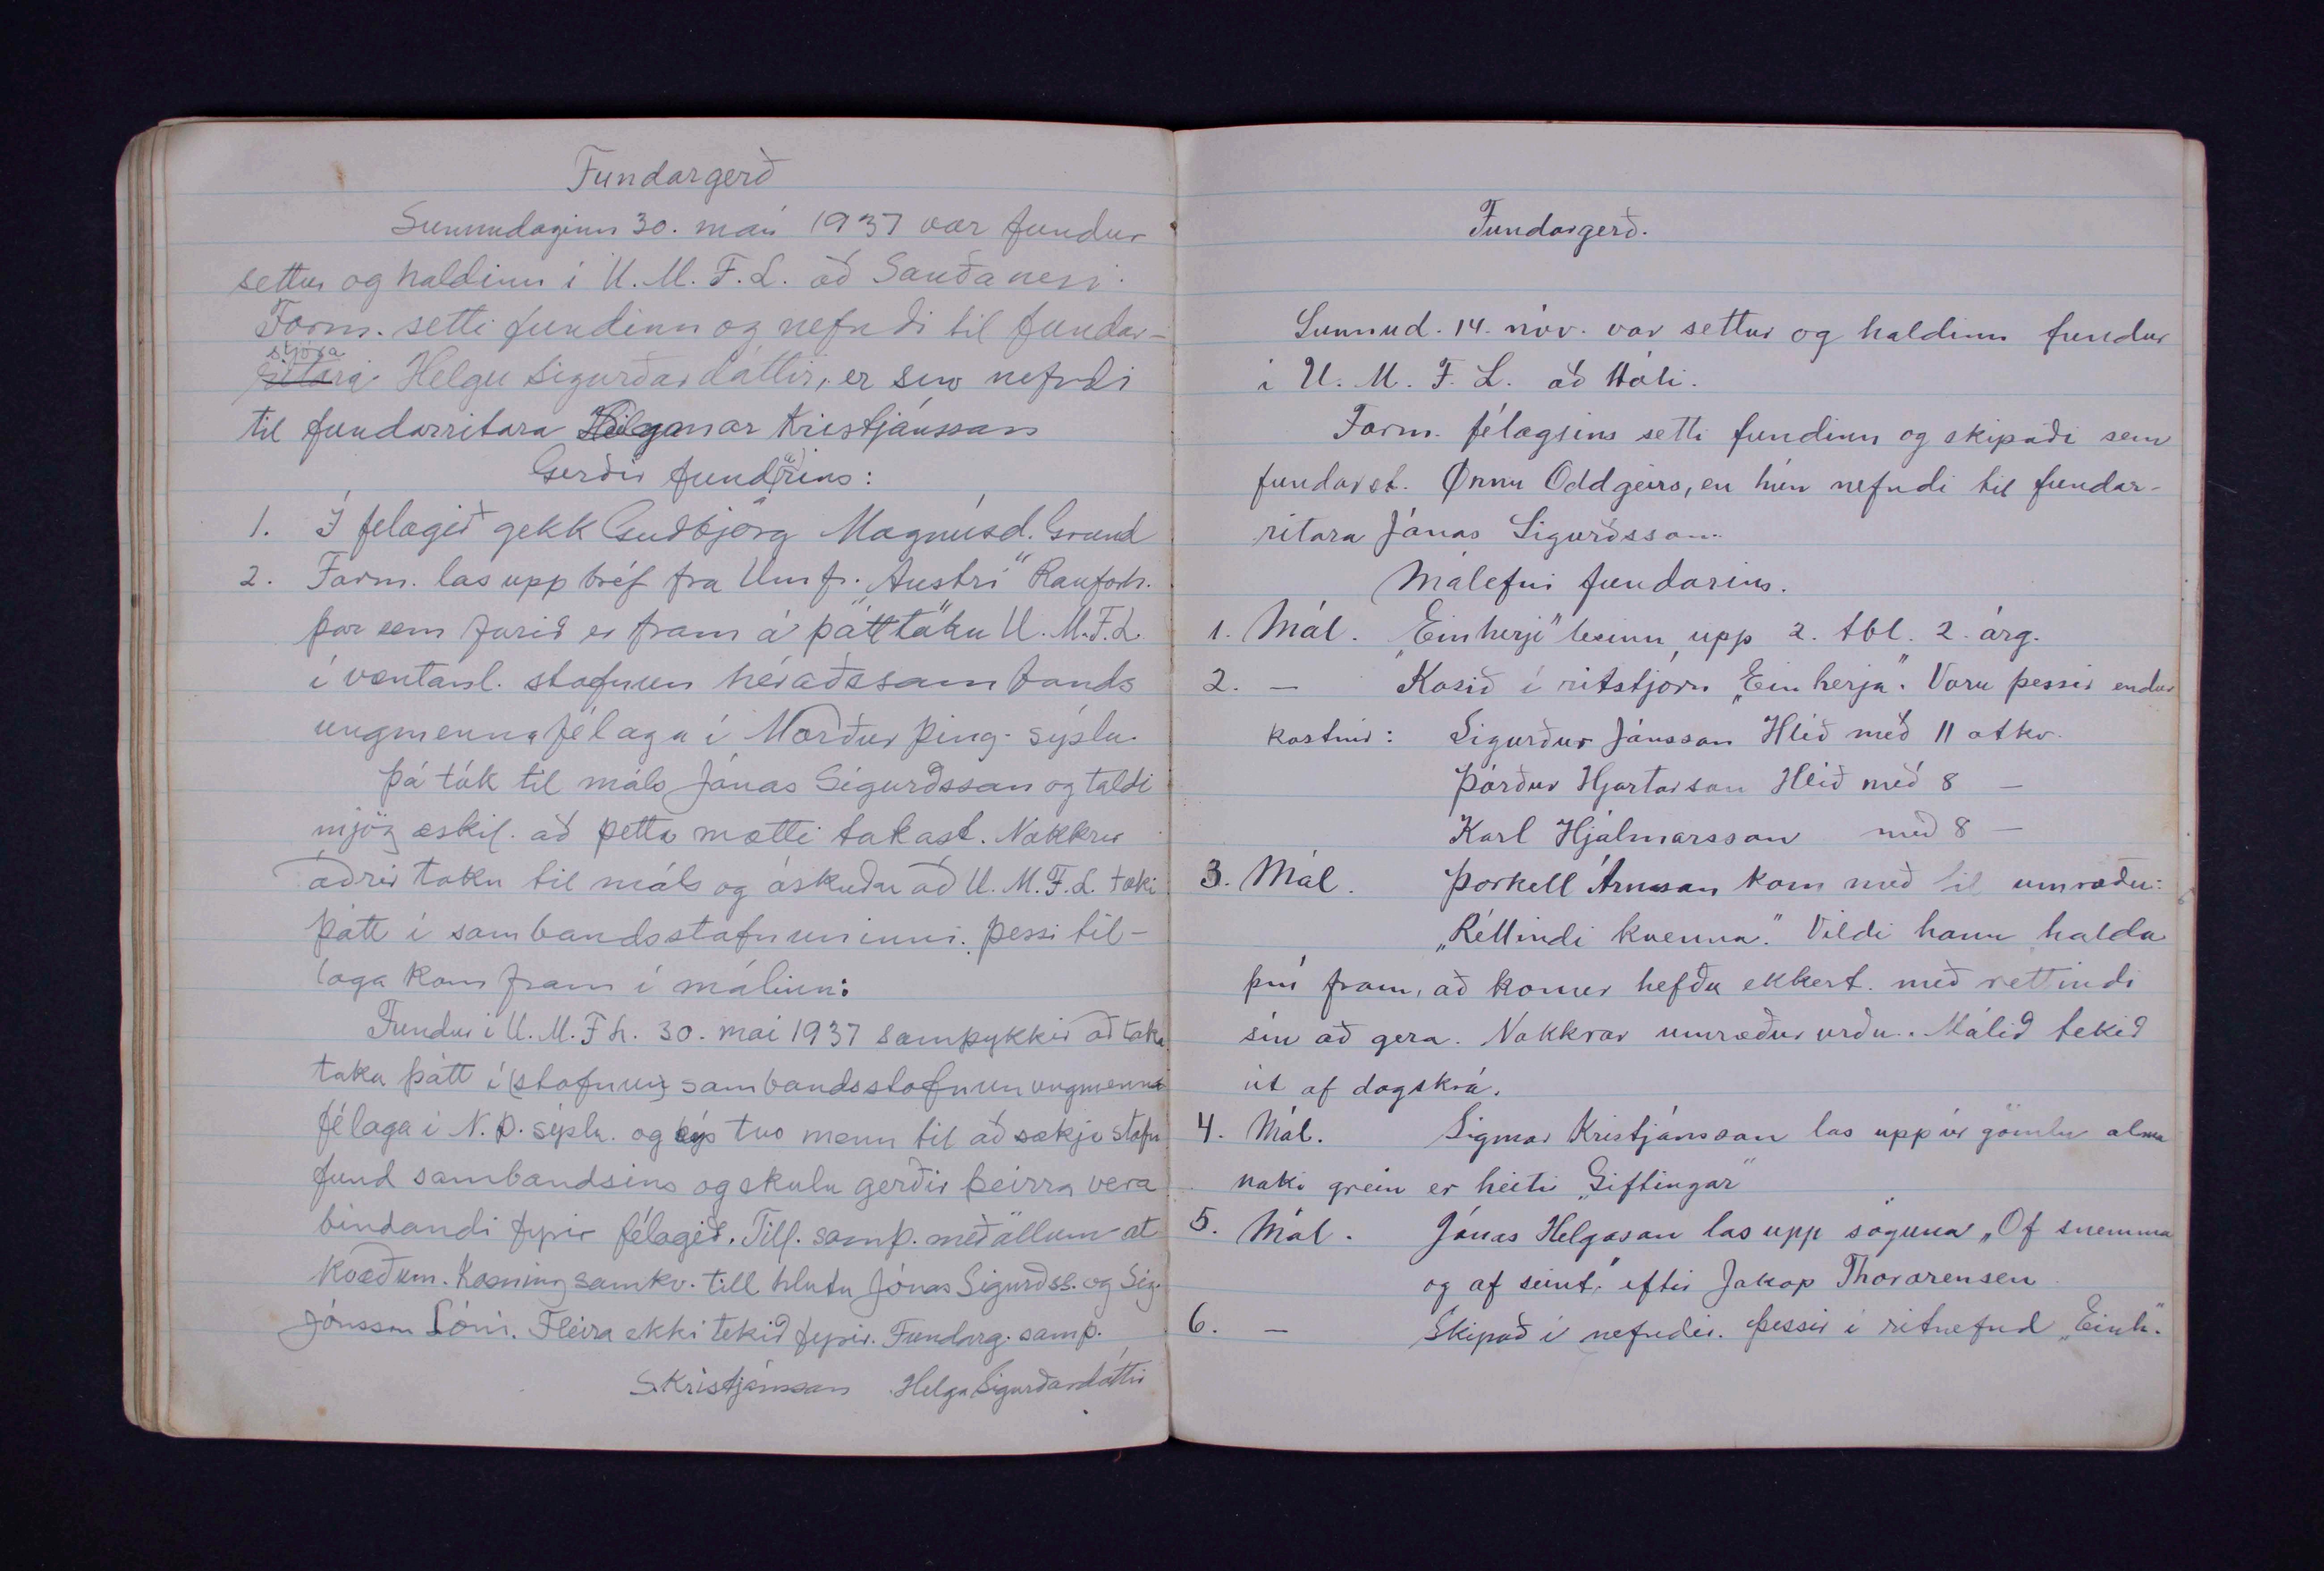 Fundargerð
Sunnudaginn 30. maí 1937 var fundur
settur og haldinn í U. M. F. L. að Sauðanesi.
Form. setti fundinn og nefndi til fundar-
stjóra
ritara Helgu Sigurðardóttir, er svo nefndi
til fundarritara Sigmar Kristjánsson
Gerðir fund(a)rins:
1. Í felagið gekk Guðbjörg Magnúsd. Grund
2. Form. las upp bréf fra Umf. „Austri" Raufarh.
þar sem farið er fram á þátttöku U. M. F. L.
í væntanl. stofnun héraðssambands
ungmennafélaga í Norður Þing. sýslu.
Þá tók til máls Jónas Sigurðsson og taldi
mjög æskil. að þetta mætti takast. Nokkrir
aðrir toku til máls og óskuðu að U. M. F. L. tæki
þátt í sambandsstofnuninni. Þessi til-
laga kom fram í málinu:
Fundur í U. M. F. L. 30. mai 1937 samþykkir að taka
taka þátt í (stofnun) sambandsstofnun ungmenna
félaga í N. Þ. sýslu. og kýs tvo menn til að sækja stofn
fund sambandsins og skulu gerðir þeirra vera
bindandi fyrir félagið. Till. samþ. með öllum at
kvæðum. Kosning samkv. till hlutu Jónas Sigurðss. og Sig.
Jónsson Lóni. Fleira ekki tekið fyrir. Fundarg. samþ.
S. Kristjánsson Helga Sigurðardóttir
Fundargerð.
Sunnud. 14. nóv. var settur og haldinn fundur
í U. M. F. L. að Hóli.
Form. félagsins setti fundinn og skipaði sem
fundarst. Önnu Oddgeirs, en hún nefndi til fundar-
ritara Jónas Sigurðsson.
Málefni fundarins.
1. Mál. „Einherji" lesinn upp 2. tbl. 2. árg.
2. — Kosið í ritstjórn „Einherja". Voru þessir endur
kostnir: Sigurður Jónsson Hlíð með 11 atkv.
Þórður Hjartarson Hlíð með 8 —
Karl Hjálmarsson með 8 —
3. Mál. Þorkell Árnason kom með til umræðu:
„Réttindi kvenna." Vildi hann halda
því fram, að konur hefðu ekkert með rettindi
sín að gera. Nokkrar umræður urðu. Málið tekið
út af dagskrá.
4. Mál. Sigmar Kristjánsson las upp úr gömlu alma
naki grein er heitir „Giftingar"
5. Mál. Jónas Helgason las upp söguna „Of snemma
og of seint," eftir Jakop Thorarensen
6. — Skipað í nefndir. Þessir í ritnefnd „Einh."